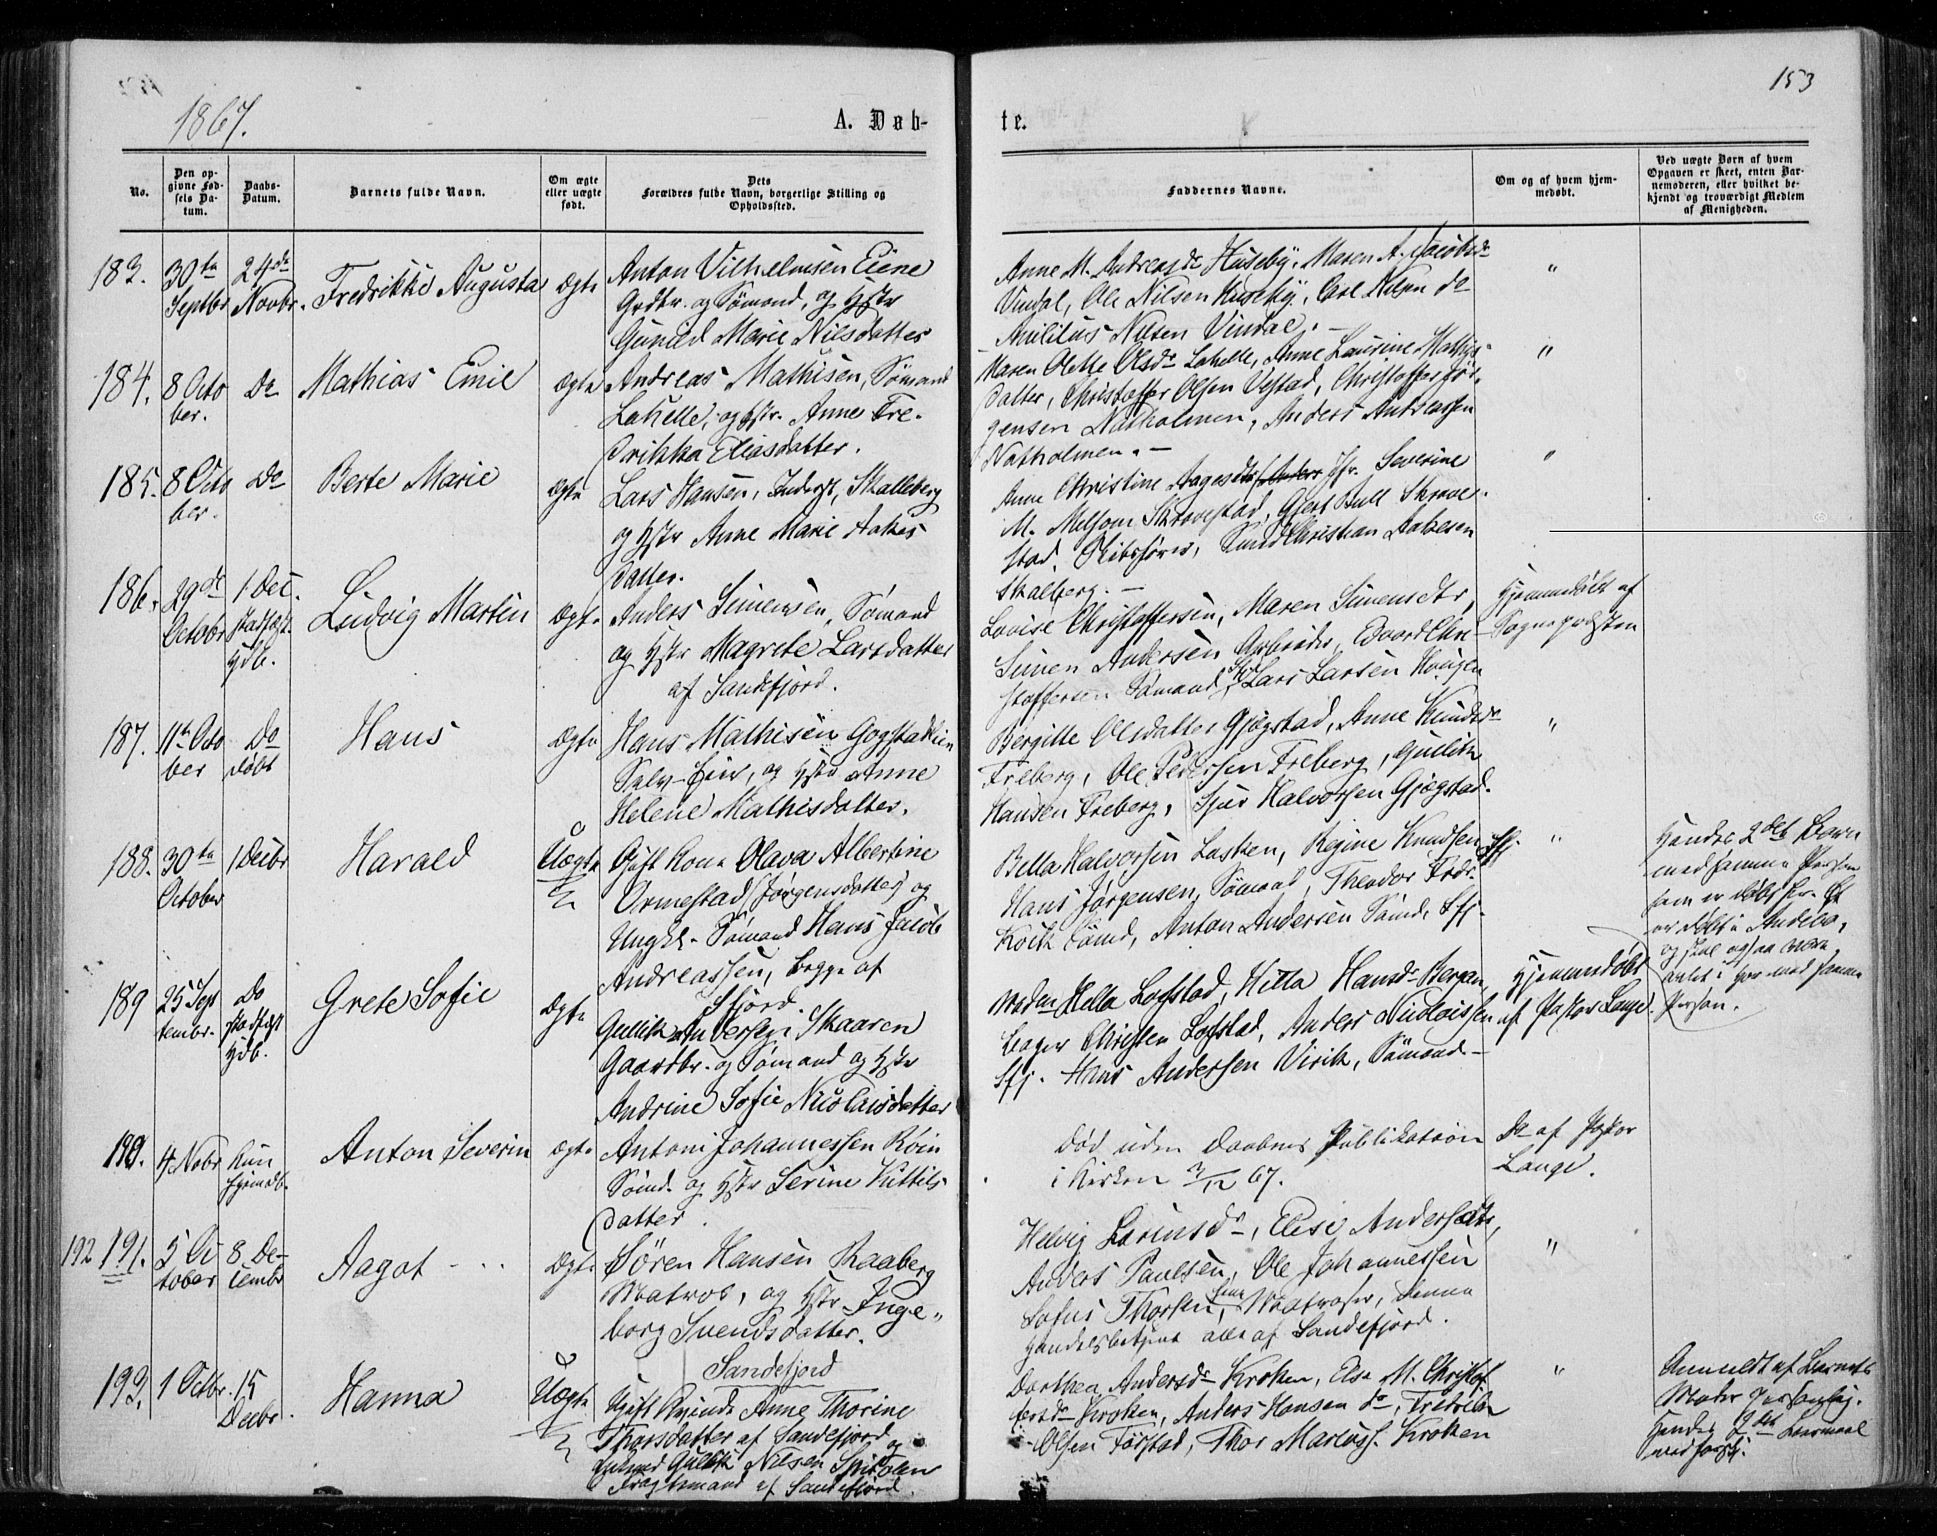 153
1867.
A. Døb-
te.
No.
Den op-
givne Fød-
sels Da-
tum.
Daabs-
Datum.
Barnets fulde Navn.
Om ægte
eller uægte
født.
Dets
Forældres fulde Navn, borgerlige Stilling og
Opholdssted.
Faddernes Navne.
Om og af hvem hjem-
medøbt.
Ved uægte Børn af hvem
Opgaven er skeet, enten Bar-
nemoderen, eller hvilket be-
kjendt og troværdigt Medlem
af Menigheden.
183.
30te
Septbr
24de
Novbr.
Fredrikke Augusta
ægte
Anton Vilhelmsen Eiene
Grdbr. og Sømand, og Hstr
Gunild Marie Nilsdatter
Anne M. Andreasdr Huseby, Maren A. Jacobsdr
Vindal, Ole Nilsen Huseby, Carl Nilsen do
Nilsen Vindal. -
"
184.
8 Octo
ber.
Do
Mathias Emil
ægte
Andreas Mathisen, Sømand
Lahelle, og Hstr. Anne Fre-
drikka Eliasdatter.
Maren Olette Olsdr Lahelle, Anne Laurine Mathis-
datter, Christoffer Olsen Vestad, Christoffer Jør-
gensen Natholmen, Anders Andreassen
Natholmen. -
"
185.
8 Octo
ber.
Do
Berte Marie
ægte
Lars Hansen, Inderst, Skalleberg
og Hstr Anne Marie Aakes
datter.
Anne Christine Aagesdtr Jfr. Severine
M. Melsom Skravestad, Gjert Bull Skrave-
stad, Skibsfører, Christian Aakesen
Skalberg. -
"
186.
29de
Octobr
1 Dec.
stadfæst.
Hdb.
Ludvig Martin
ægte
Anders Simensen, Sømand
og Hstr Magrete Larsdatter
af Sandefjord.
Lovise Christoffersen, Maren Simensdtr,
Simen Andersen Arbeider, Edvard Chri-
stoffersen Sømand, Lars Larsen Haugen
Hjemmedøbt af
Sognepræsten
187.
11te Octo
ber
Do
døbt
Hans
ægte
Hans Mathisen Gogstad
Selv-eier, og Hstr Anne
Helene Mathisdatter.
Bergitte Olsdatter Gjøgstad, Anne Knudsdr
Freberg, Ole Pedersen Freberg, Gulik
Hansen Freberg, Sjur Halvorsen Gjøgstad.
"
188.
30te
October
1 Decbr
Harald
Uægte
Gift Kone Olava Albertine
Ormestad (Jørgensdatter) og
Ungkl. Sømand Hans Jacob
Andreassen, begge af
Sfjord.
Bella Halvorsen Lasken, Regine Knudsen Sfj.
Hans Jørgensen, Sømand, Theodor Fredr.
Sømd, Anton Andersen Sømd, Sfj.
"
Hendes 2det Barn
med samme Person
som er døbt
er døbt i Andebo,
og skal ogsaa være
avlet i Hor med samme
Person.
189
25 Sept
tembr.
Do
stadfæst
Hdb.
Grete Sofie
ægte
Gullik Andersen Skaaren
Gaardbr. og Sømand og Hstr
Andrine Sofie Nicolaisdatter
Mdm Hella Lofstad, Hella Hansdr Bergan,
Bager Christen Lofstad, Anders Nicolaisen
Sfj. Hans Andersen Virik, Sømand -
Hjemmedøbt
af Pastor Lange.
190.
4 Nobr
Kun
hjemdb.
Anton Severin
ægte
Anton Johannessen Røin
Sømd. og Hstr Serine Kittils-
datter.
Død uden Daabens Publikation
i Kirken 3/12 67.
Do af Pastor
Lange.
192 191.
5 Oc
tober
8 De-
cembr
Aagot - . .
ægte
Søren Hansen Raaberg
Matros, og Hstr Inge-
borg Svendsdatter.
Sandefjord
Helvig Larinsdr, Elise Andersdtr,
Anders Paulsen, Ole Johannessen
Sofus Thorsen, Matroser, denne
Handelsbetjent alle af Sandefjord.
"
193.
1 Octbr.
15
Decbr.
Hanna
Uægte
Ugift Kvinde Anne Thorine
Thorsdatter af Sandefjord og
Gullik Nilsen
Fragtemand af Sandefjord.
Dorthea Andersdr Kroken, Else M. Christof
fersdr Kroken, Anders Hansen do, Fredrik
Olsen Førstad, Thor Mariuss. Kroken
"
Anmeldt af Barnets
Moder personlig.
Hendes 2det Leiermaal